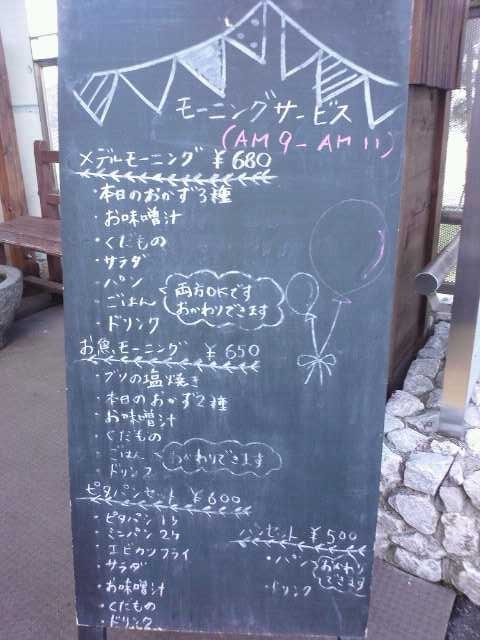 モーニングサービス
(AM9-AM11)
メデルモーニング ¥680
・本日のおかず3種
・お味噌汁
・くだもの
・サラダ
・パン
・ごはん
両方OKです
おかわりできます
・ドリンク
お魚モーニング ¥650
・ブリの塩焼き
・本日のおかず2種
・お味噌汁
・くだもの
・ごはん
おかわりできます
・ドリンク
ピタパンセット ¥600
・ピタパン1ケ
・ミニパン2ケ
・エビカツフライ
・サラダ
・お味噌汁
・くだもの
・ドリンク
パンセット ¥500
・パン
おかわり
できます
・ドリンク